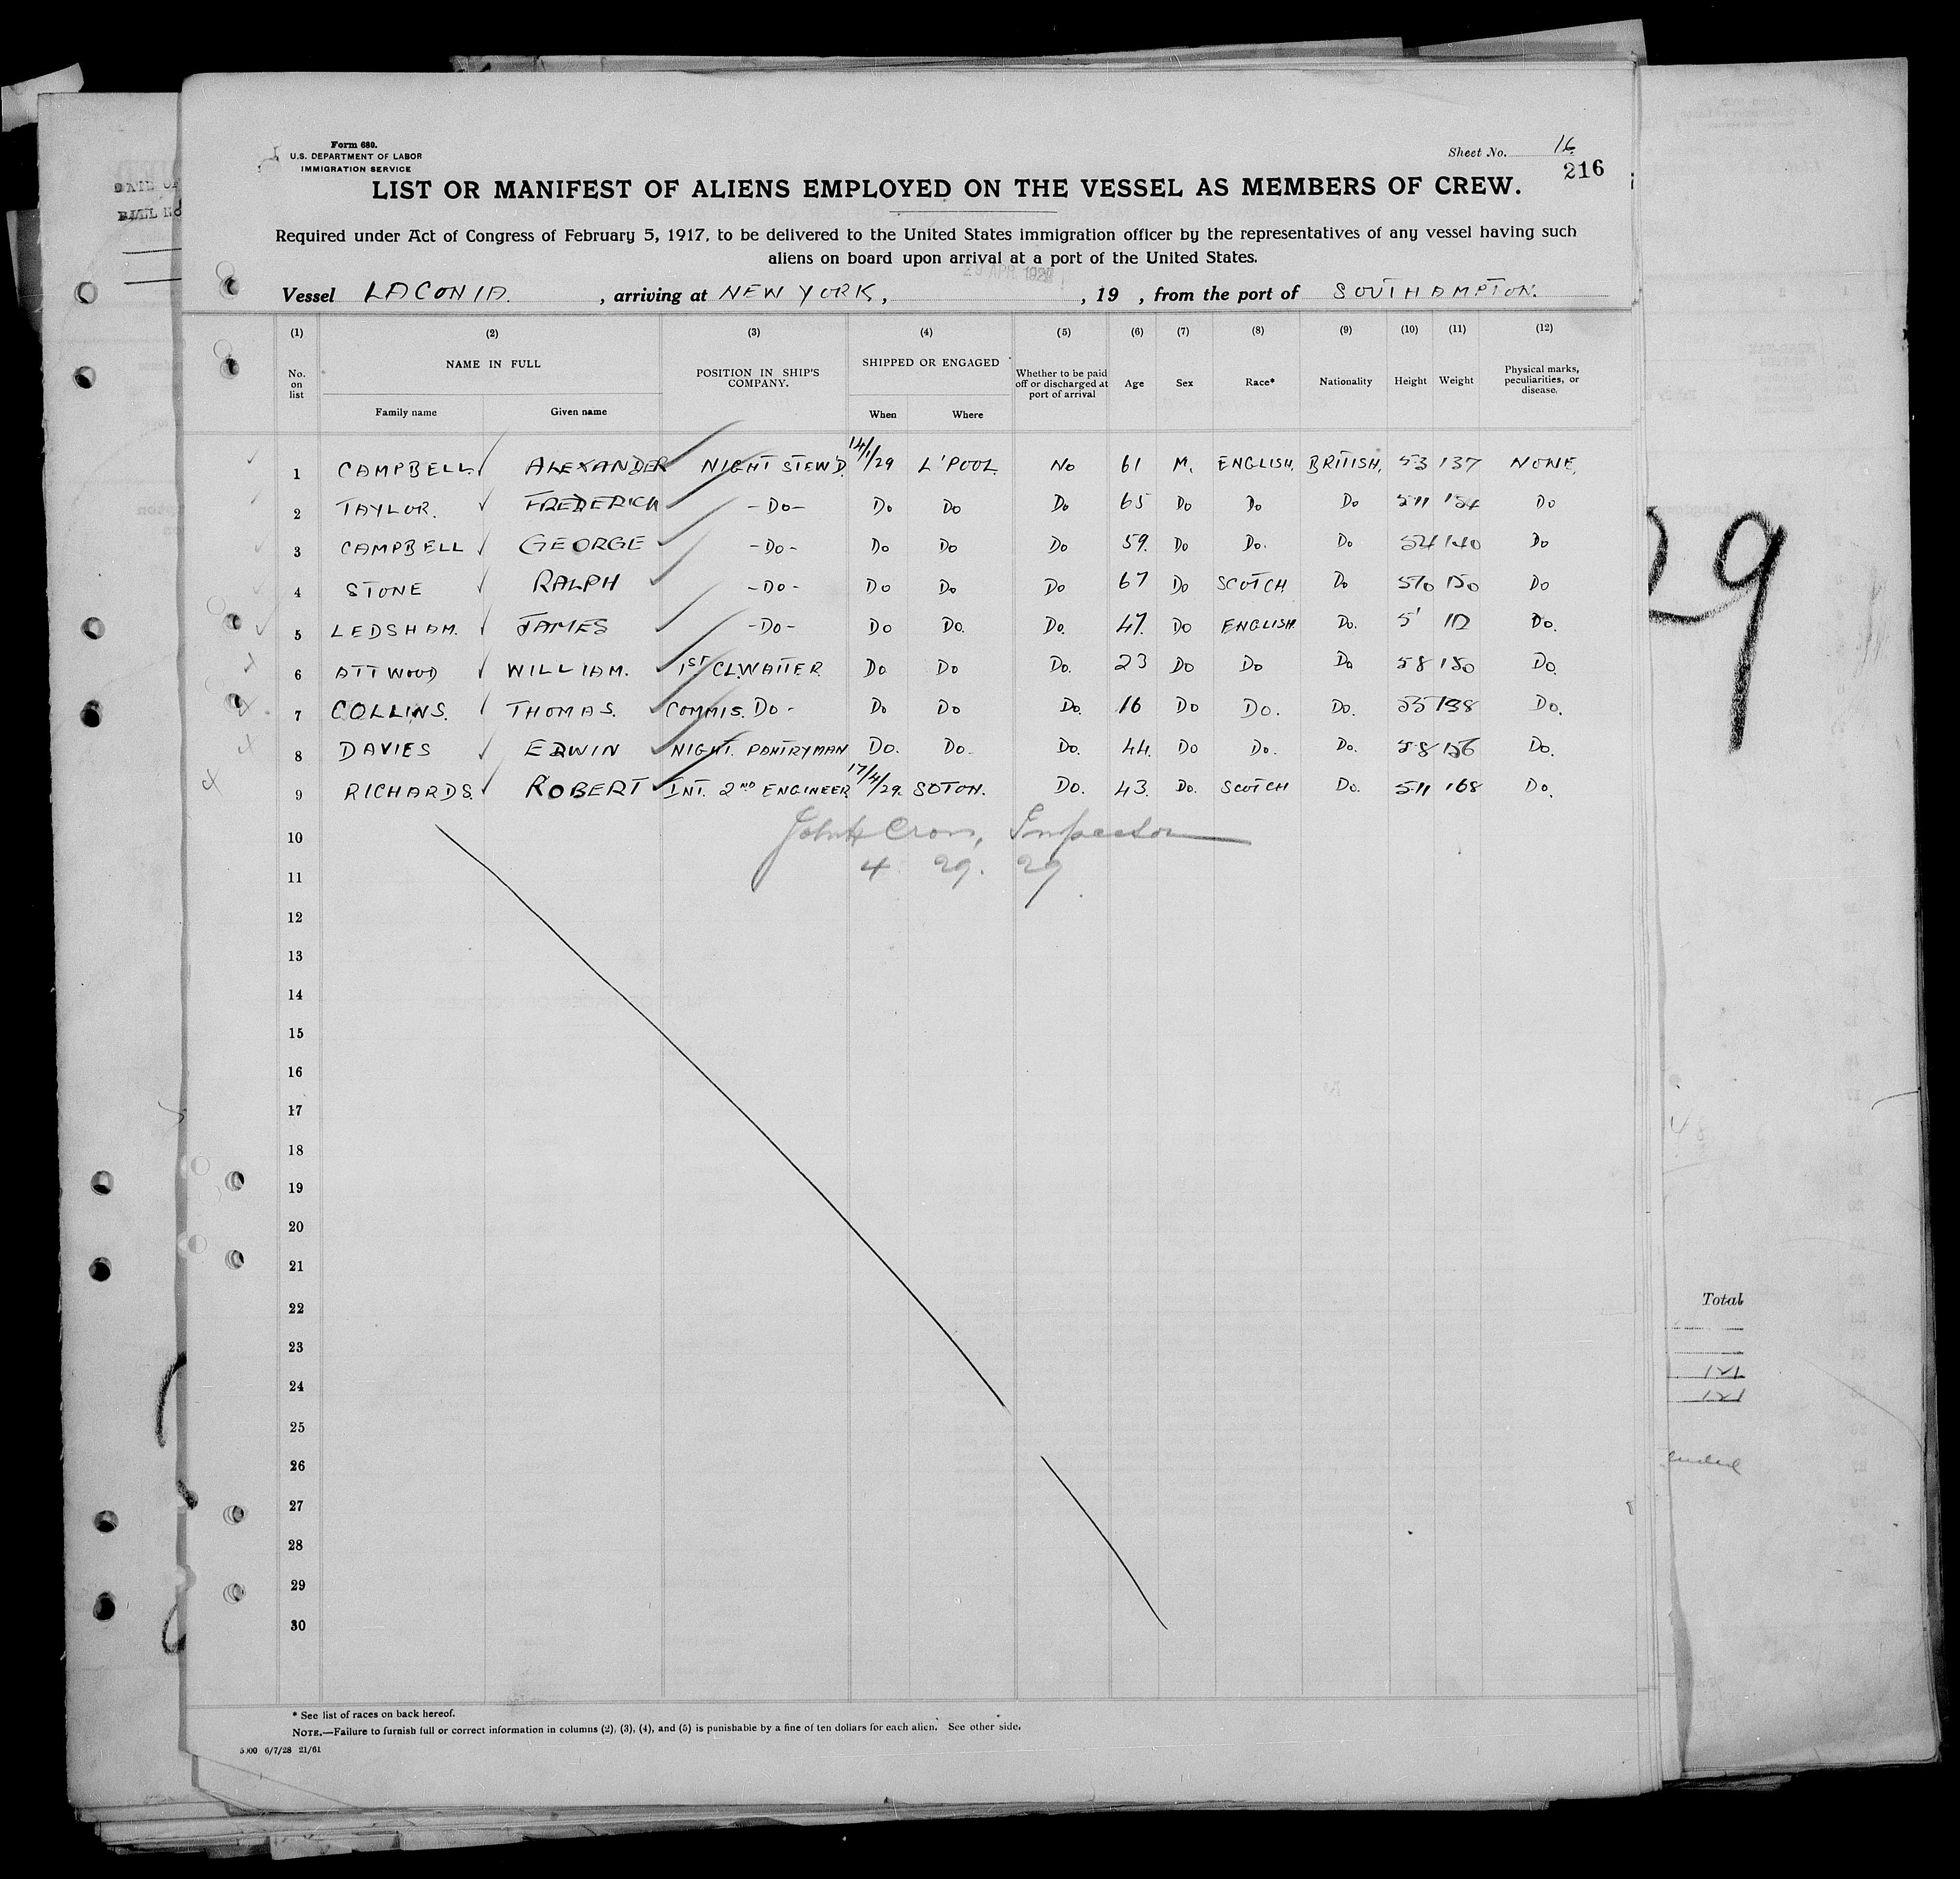 Form 680.
U.S. DEPARTMENT OF LABOR
IMMIGRATION SERVICE
Sheet No. 16
216
LIST OR MANIFEST OF ALIENS EMPLOYED ON THE VESSEL AS MEMBERS OF CREW.
Required under Act of Congress of February 5, 1917, to be delivered to the United States immigration officer by the representatives of any vessel having such
aliens on board upon arrival at a port of the United States.
29 APR 1929
Vessel LACONIA. , arriving at NEW YORK, , 19 , from the port of SOUTHAMPTON.
(1) (2) (3) (4) (5) (6) (7) (8) (9) (10) (11) (12)
No. on list NAME IN FULL POSITION IN SHIP'S COMPANY. SHIPPED OR ENGAGED Whether to be paid off or discharged at port of arrival Age Sex Race* Nationality Height Weight Physical marks, peculiarities, or disease.
Family name Given name When Where
1 CAMPBELL. ALEXANDER NIGHT STEW'D. 14/1/29 L'POOL No 61 M. ENGLISH. BRITISH. 53 137 NONE.
2 TAYLOR. FREDERICK -Do- Do Do Do 65 Do Do Do 511 154 Do
3 CAMPBELL GEORGE -Do- Do Do Do 59. Do Do. Do 54 140 Do
4 STONE RALPH -Do- Do Do Do 67 Do SCOTCH Do 510 150 Do
5 LEDSHAM. JAMES -Do- Do Do. Do. 47. Do ENGLISH. Do. 5' 112 Do.
6 ATTWOOD WILLIAM. 1ST CL. WAITER. Do Do Do. 23 Do Do Do 58 150 Do.
7 COLLINS. THOMAS. COMMIS. Do- Do Do Do. 16 Do Do. Do. 55 138 Do.
8 DAVIES EDWIN NIGHT. PANTRYMAN Do. Do. Do. 44. Do Do. Do. 58 156 Do.
9 RICHARDS. ROBERT INT. 2ND ENGINEER. 17/4/29. SOTON. Do. 43. Do. SCOTCH Do. 511 168 Do.
10 Inspector
11 4 29. 29
12
13
14
15
16
17
18
19
20
21
22
23
24
25
26
27
28
29
30
29
Total
121
121
* See list of races on back hereof.
NOTE.—Failure to furnish full or correct information in columns (2), (3), (4), and (5) is punishable by a fine of ten dollars for each alien. See other side.
5000 6/7/28 21/61